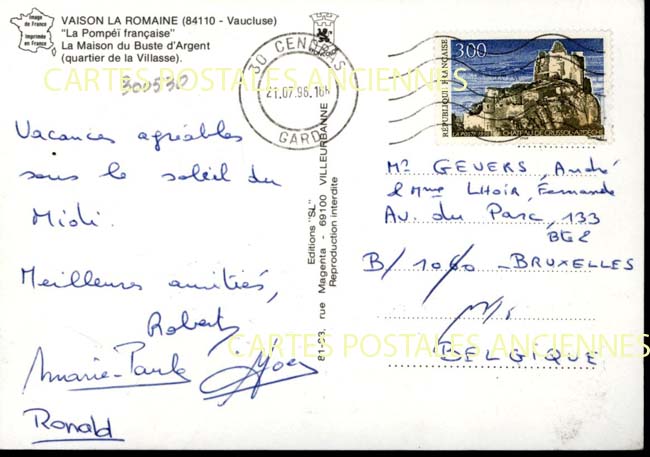 Image de France
Imprimée en France
VAISON LA ROMAINE (84110 - Vaucluse)
"La Pompéï française"
La Maison du Buste d'Argent
(quartier de la Villasse).
300530
CARTES POSTALES ANCIENNES
30 CENDRAS
21.07.96.16H
GARD
3,00
RÉPUBLIQUE FRANÇAISE
CHATEAU DE CRUSSOL-ARDÈCHE
Vacances agréables
sous le soleil du
Midi.
Meilleures amitiés,
Robert,
Marie-Paule
Ronald
Editions "SL"
81-93, rue Magenta - 69100 VILLEURBANNE
Reproduction interdite
Mr GEVERS, André
& Mme LHOIR, Fernande
Av. du Parc, 133
Bte 2
B/1060 - BRUXELLES
BELGIQUE
CARTES POSTALES ANCIENNES